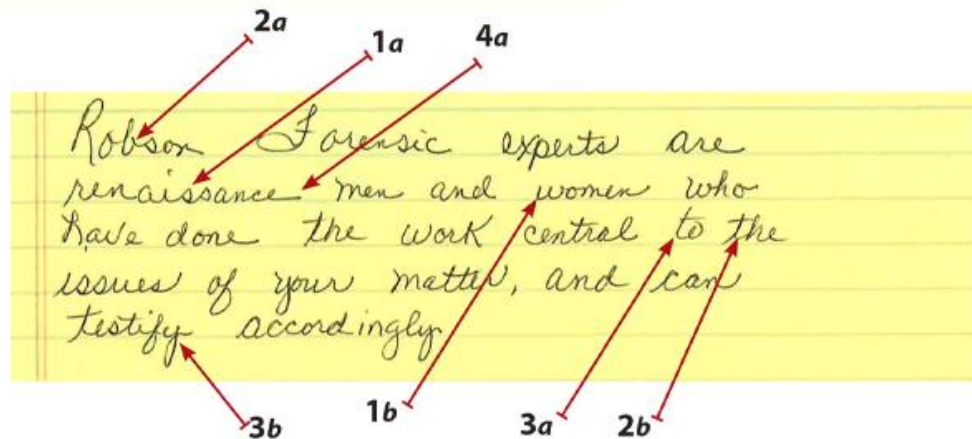 2a
1a 4a
Robson Forensic experts are
renaissance men and women who
have done the work central to the
issues of your matter, and can
testify accordingly
3b 1b 3a 2b